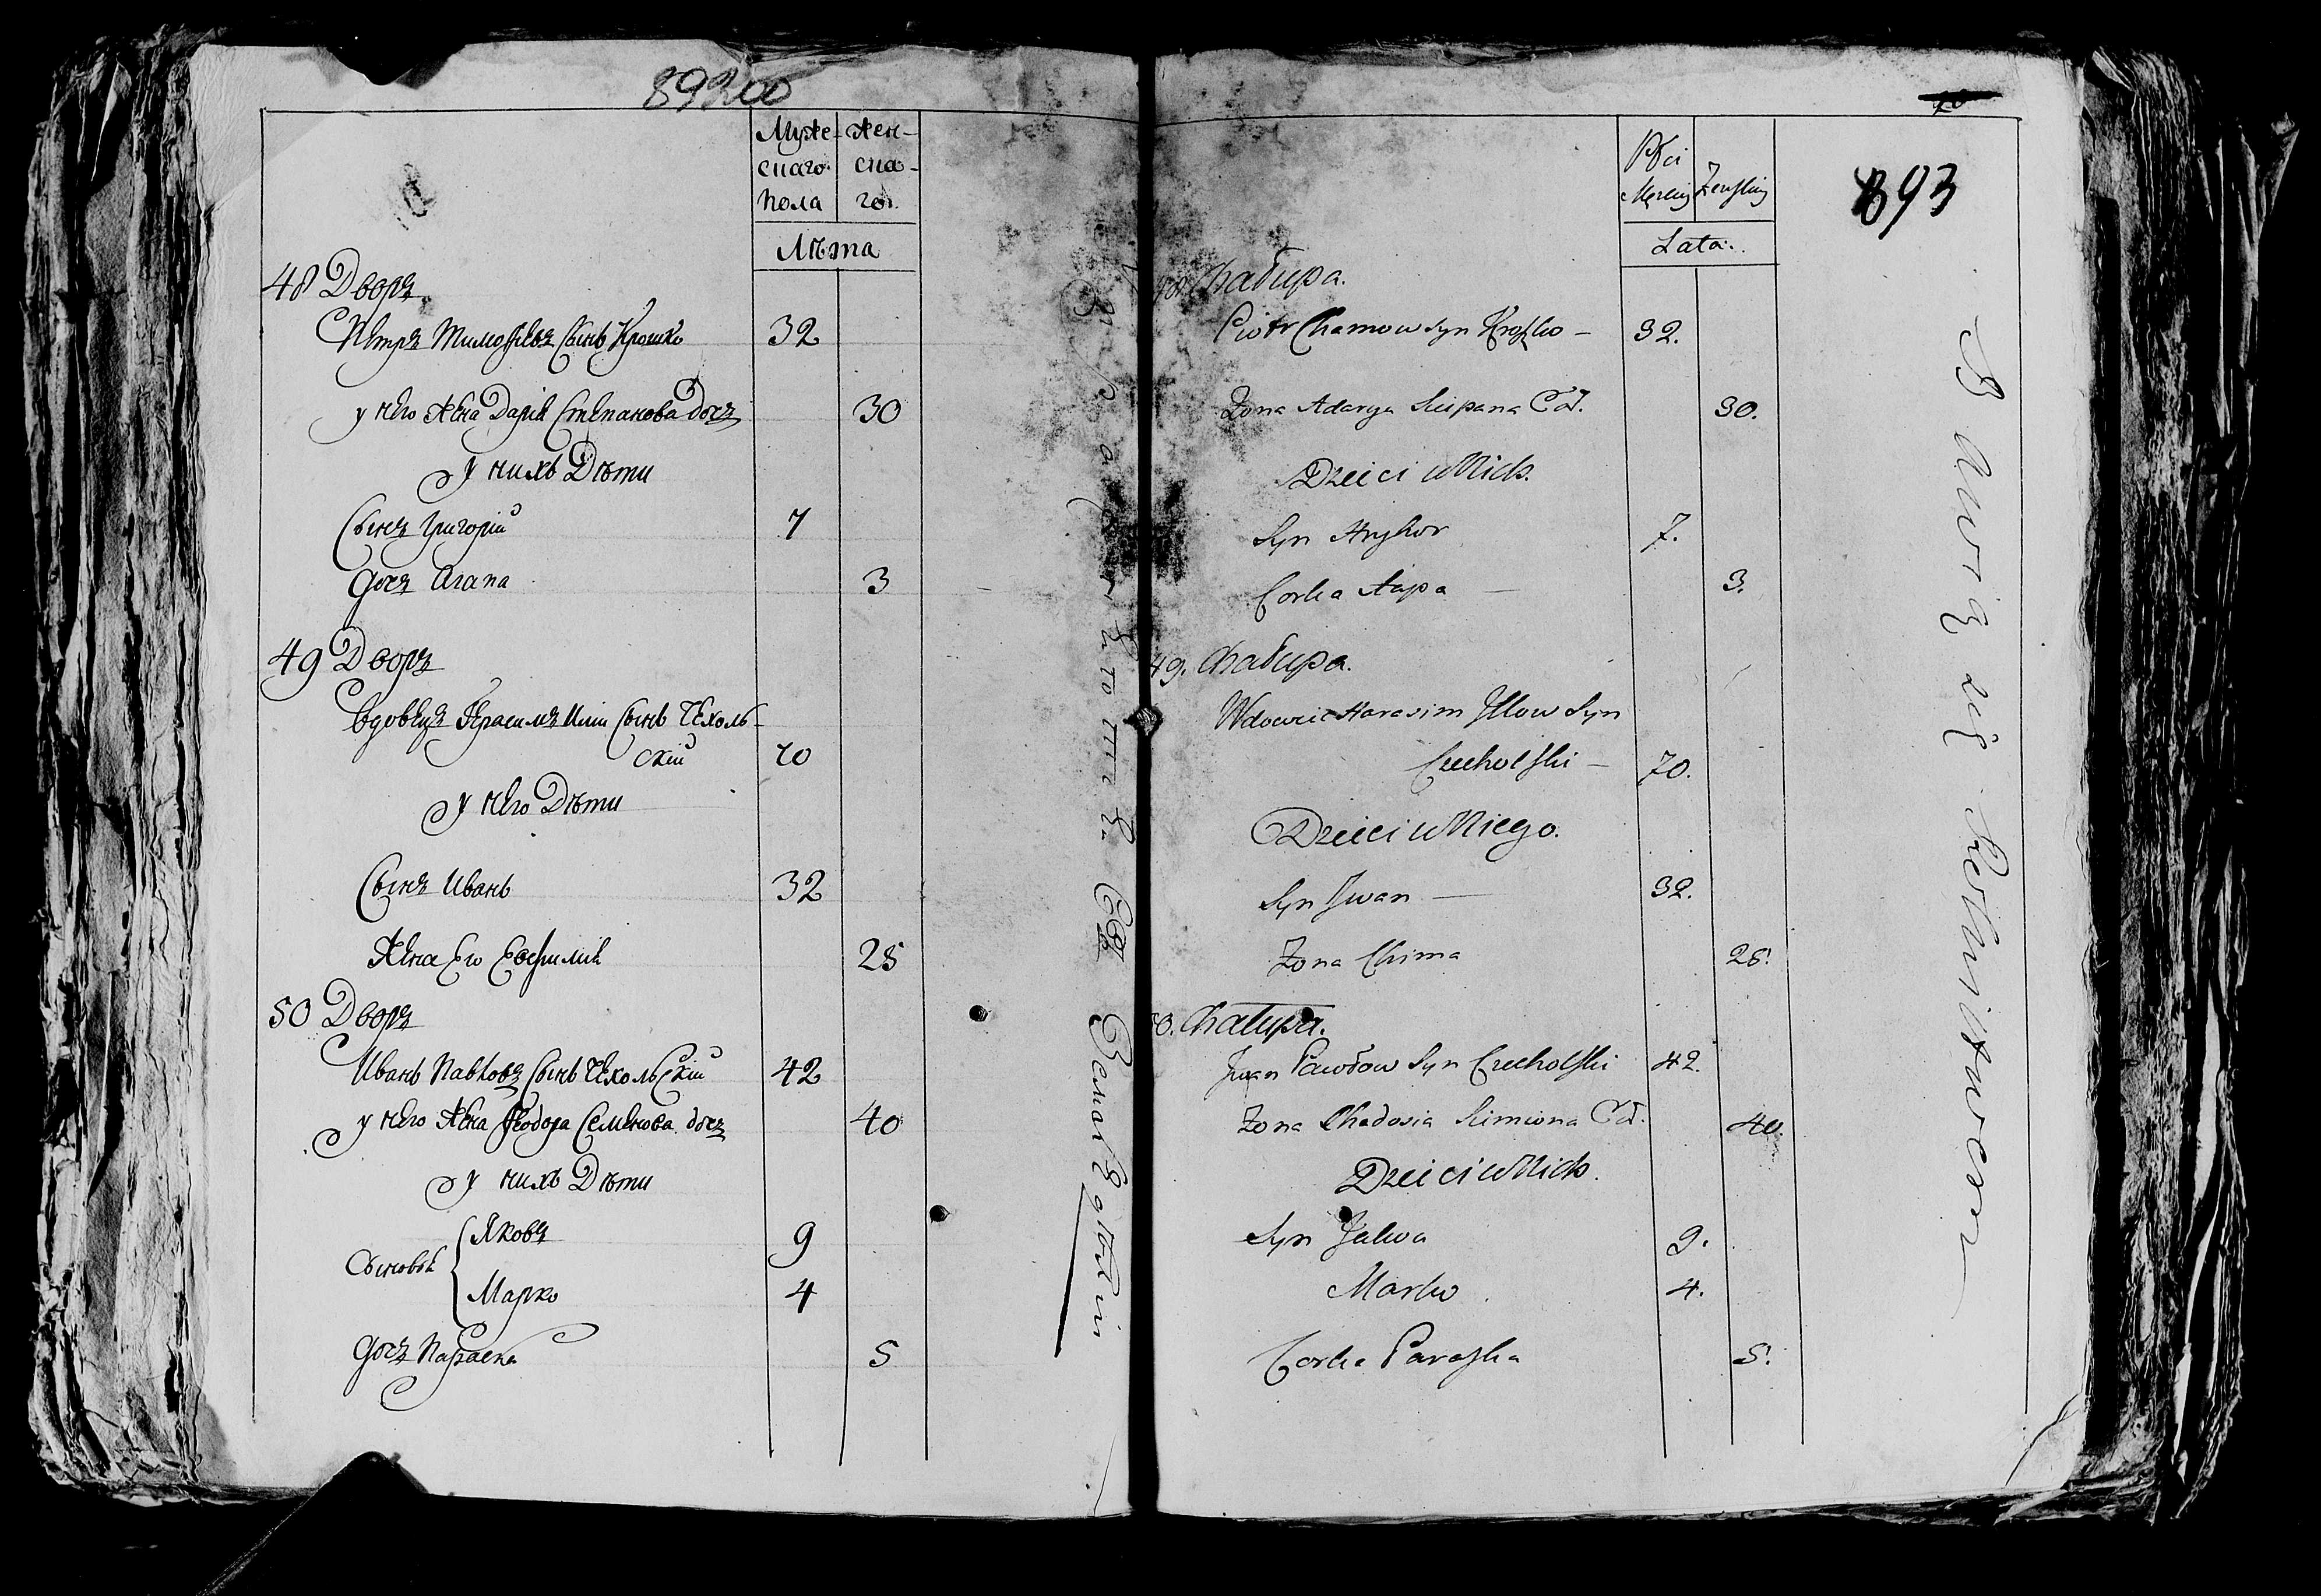 89200
Муже- жен-
скаго ска-
пола го.
Лѣта
48 Дворъ
Петръ Тимофѣевъ Сынъ Крошко 32
у него жена Дарія Степанова дочь 30
у нихъ Дѣти
Сынъ Григорій 7
Дочь Агапа 3
49 Дворъ
Вдовецъ Герасимъ Иліи Сынъ Чехоль-
скій 70
у него Дѣти
Сынъ Иванъ 32
Жена Его Евфимія 25
50 Дворъ
Иванъ Павловъ Сынъ Чехольскій 42
у него жена Феодора Семенова дочь 40
у нихъ Дѣти
Сыновья { Яковъ 9
Марко 4
Дочь Параска 5
893
Płci
Męskiey Żeńskiey
Lata.
48 Chałupa.
Piotr Chamow Syn Kroszko – 32.
Zona Adarya Stepana Cór. 30.
Dzieci u Nich.
Syn Hryhor 7.
Corka Aapa – 3.
49. Chałupa.
Wdowiec Harasim Illow Syn
Czecholski – 70.
Dzieci u Niego.
Syn Jwan – 32.
Zona Chima 25.
50. Chałupa.
Jwan Pawłow Syn Czecholski 42.
Zona Chadosia Simiona Cór. 40.
Dzieci u Nich.
Syn Jakva 9.
Marko 4.
Corka Paraska 5.